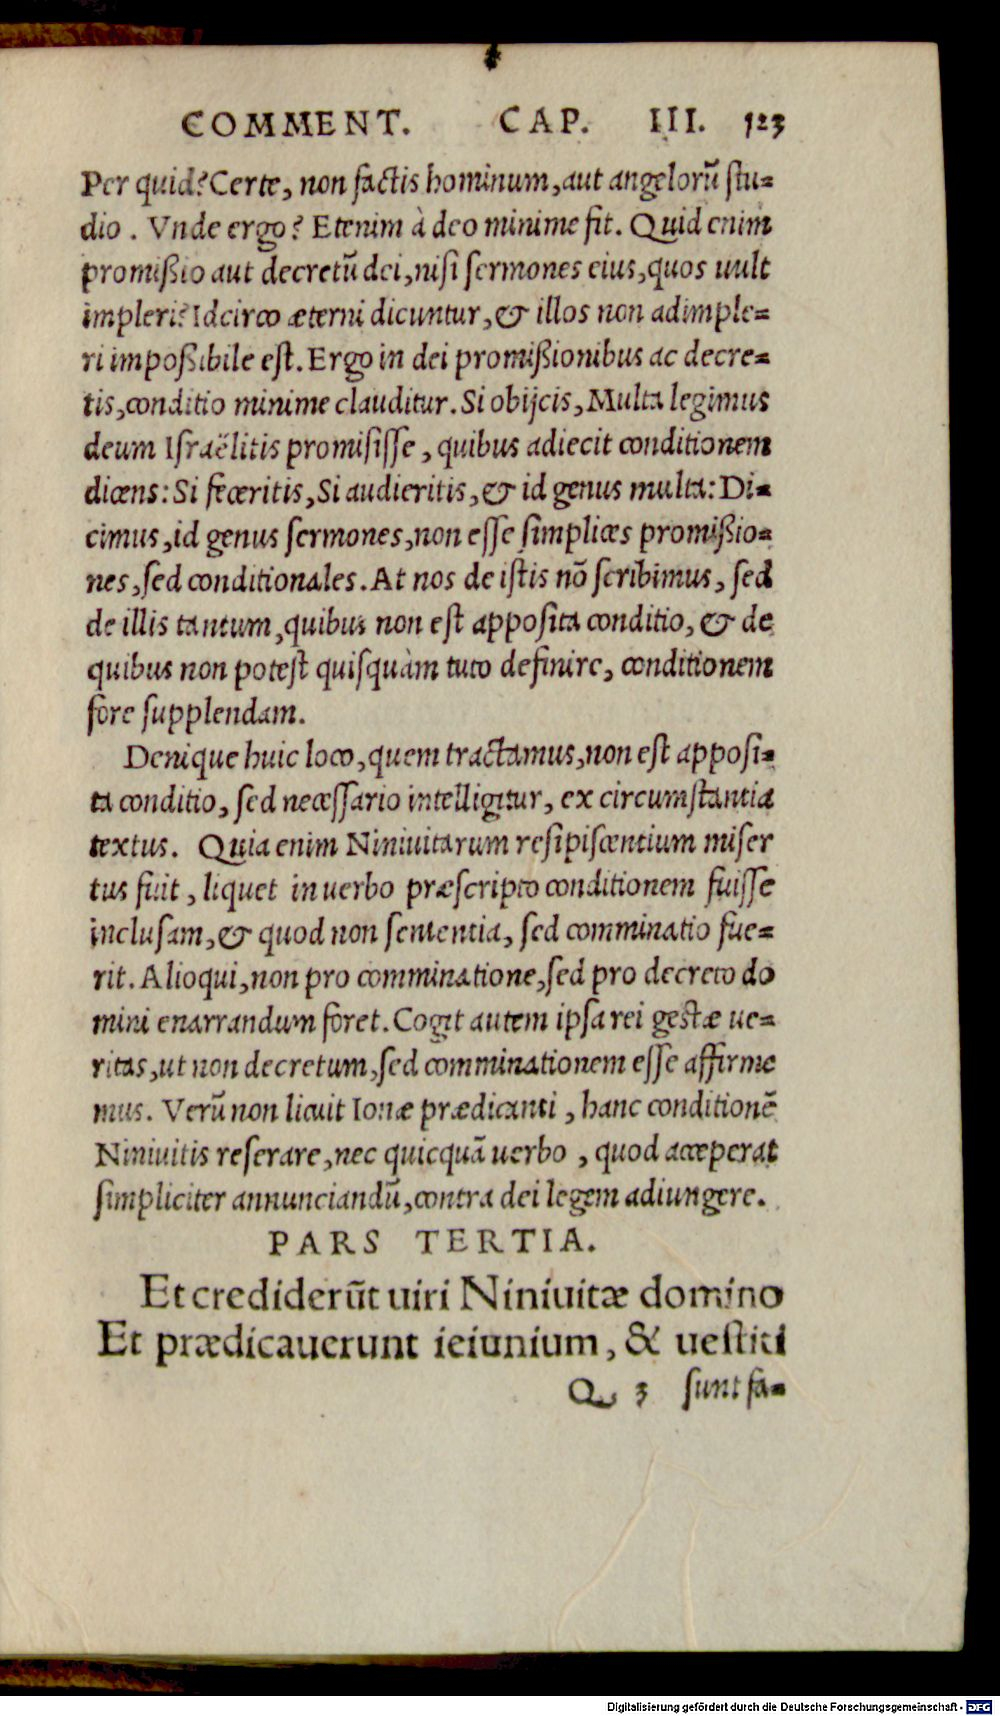 COMMENT. CAP. III. 123
Per quid? Certe, non factis hominum, aut angelorũ stu=
dio. Vnde ergo? Etenim à deo minime fit. Quid enim
promißio aut decretũ dei, nisi sermones eius, quos uult
impleri? Idcirco æterni dicuntur, & illos non adimple=
ri impoßibile est. Ergo in dei promißionibus ac decre=
tis, conditio minime clauditur. Si obijcis, Multa legimus
deum Israëlitis promisisse, quibus adiecit conditionem
dicens: Si feceritis, Si audieritis, & id genus multa: Di=
cimus, id genus sermones, non esse simplices promißio=
nes, sed conditionales. At nos de istis nõ scribimus, sed
de illis tantum, quibus non est apposita conditio, & de
quibus non potest quisquàm tuto definire, conditionem
fore supplendam.
Denique huic loco, quem tractamus, non est apposi=
ta conditio, sed necessario intelligitur, ex circumstantia
textus. Quia enim Niniuitarum resipiscentium miser
tus fuit, liquet in uerbo præscripto conditionem fuisse
inclusam, & quod non sententia, sed comminatio fue=
rit. Alioqui, non pro comminatione, sed pro decreto do
mini enarrandum foret. Cogit autem ipsa rei gestæ ue=
ritas, ut non decretum, sed comminationem esse affirme
mus. Verũ non licuit Ionæ prædicanti, hanc conditionẽ
Niniuitis reserare, nec quicquã uerbo, quod acceperat
simpliciter annunciandũ, contra dei legem adiungere.
PARS TERTIA.
Et crediderũt uiri Niniuitæ domino
Et prædicauerunt ieiunium, & uestiti
Q 3 sunt sa=
Digitalisierung gefördert durch die Deutsche Forschungsgemeinschaft - DFG